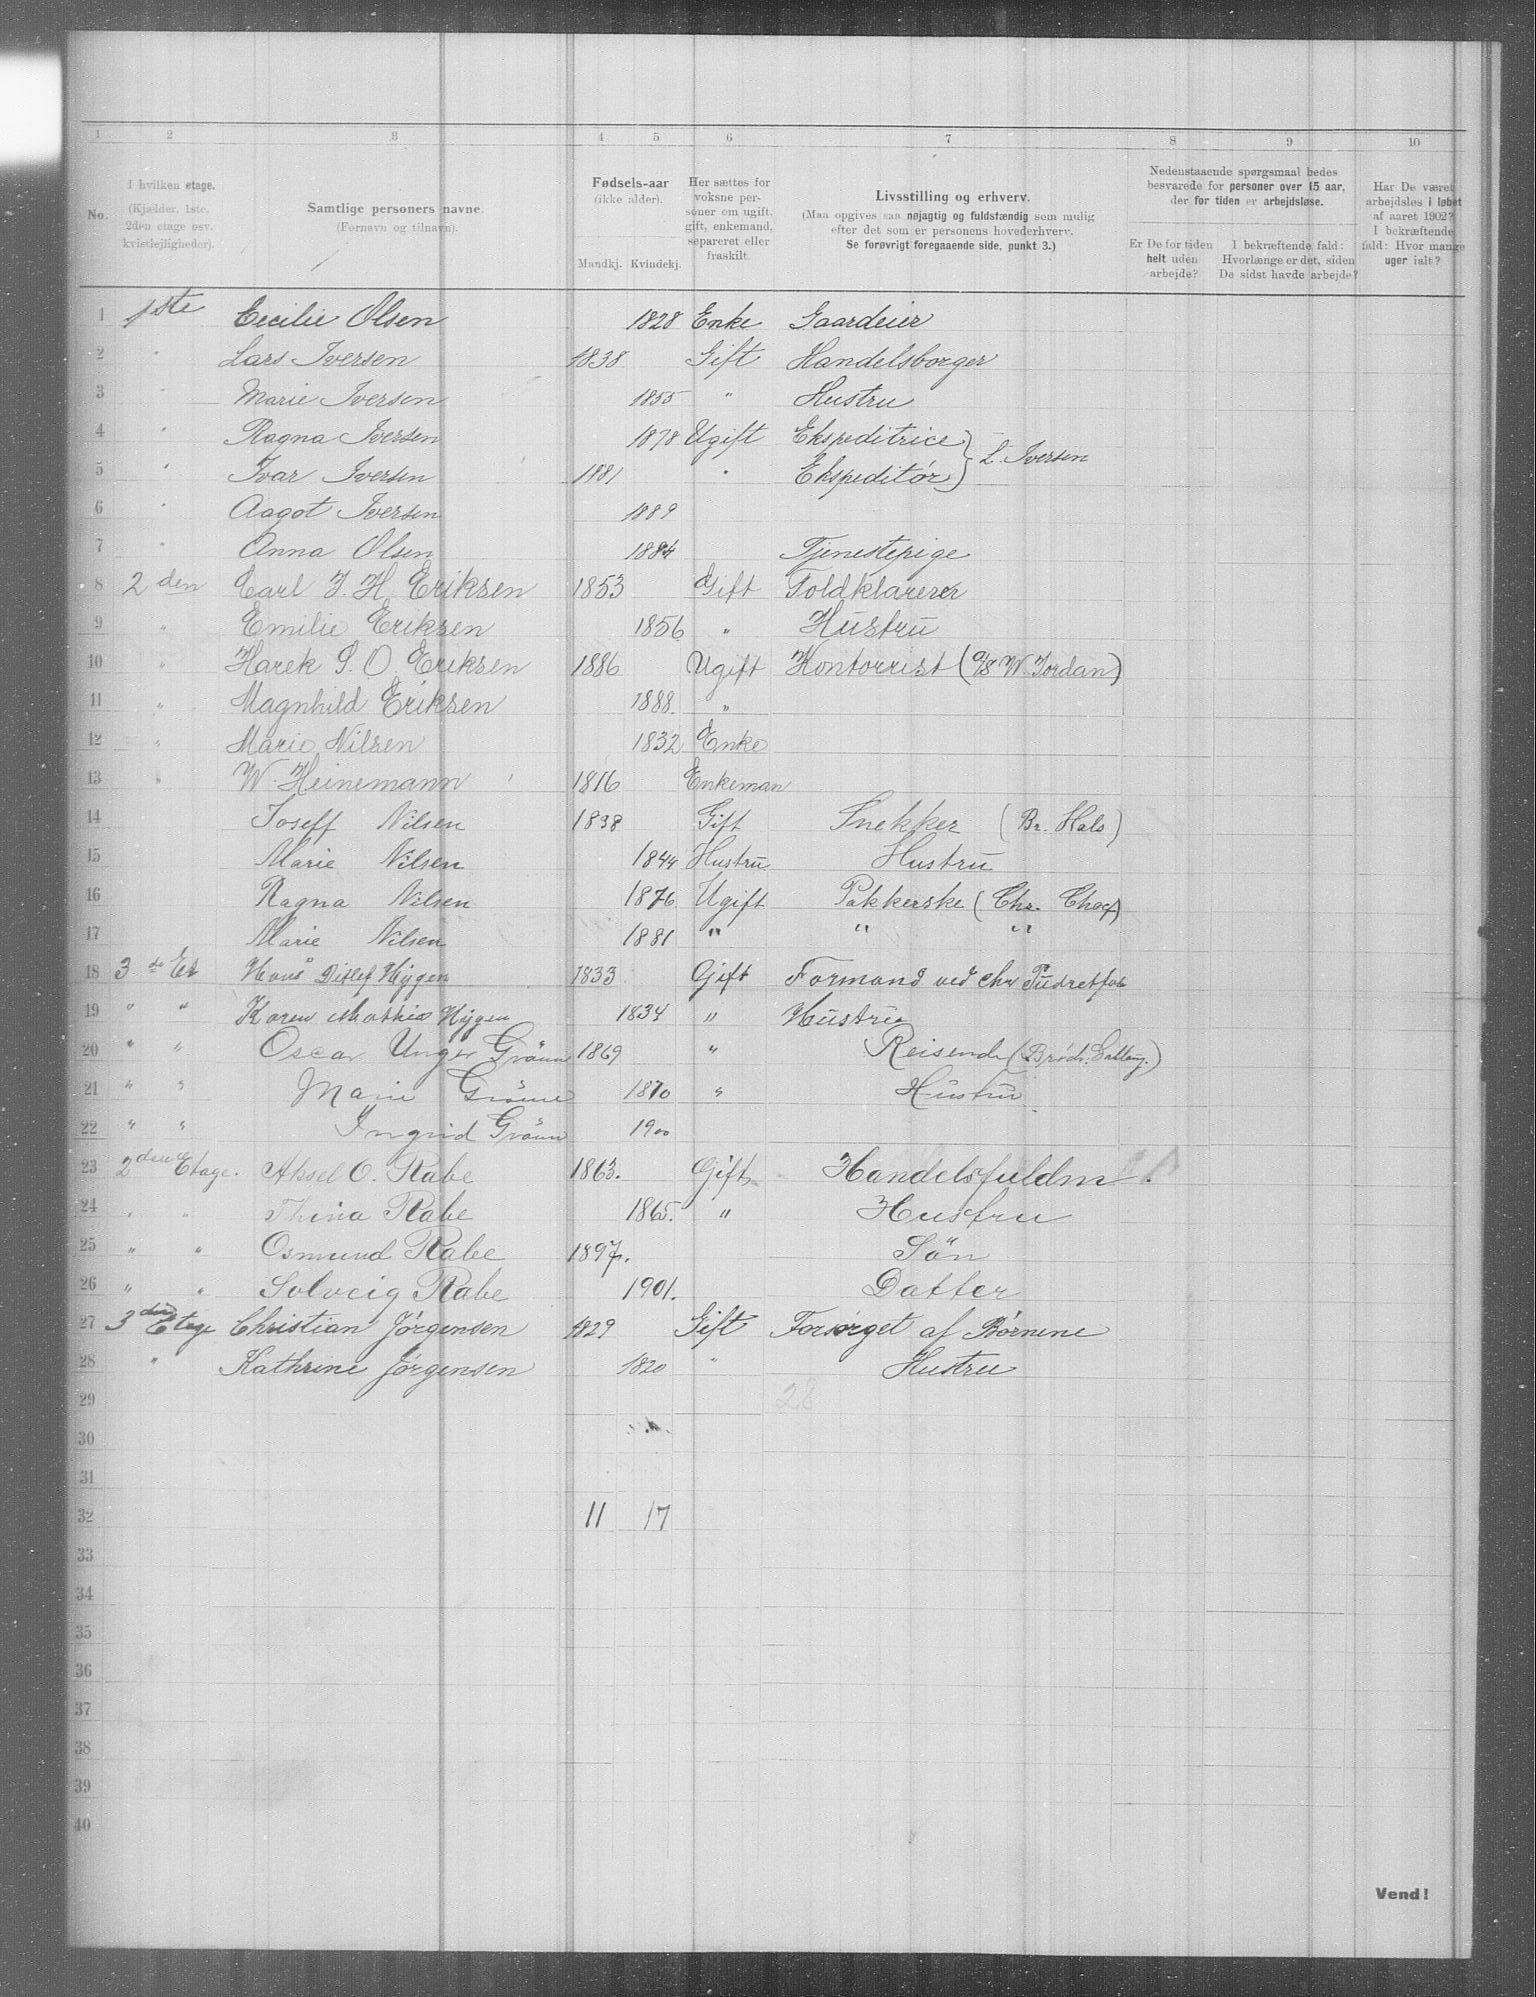 1 2 3 4 5 6 7 8 9 10
No.
I hvilken etage.
(Kjælder, 1ste,
2den etage osv.
kvistlejligheder).
Samtlige personers navne.
(Fornavn og tilnavn).
Fødsels-aar
(ikke alder).
Mandkj. Kvindekj.
Her sættes for
voksne per-
soner om ugift,
gift, enkemand,
separeret eller
fraskilt.
Livsstilling og erhverv.
(Maa opgives saa nøjagtig og fuldstændig som mulig
efter det som er personens hovederhverv.
Se forøvrigt foregaaende side, punkt 3.)
Nedenstaaende spørgsmaal bedes
besvarede for personer over 15 aar,
der for tiden er arbejdsløse.
Er De for tiden
helt uden
arbejde?
I bekræftende fald:
Hvorlænge er det, siden
De sidst havde arbejde?
Har De været
arbejdsløs i løbet
af aaret 1902?
I bekræftende
fald: Hvor mange
uger ialt?
1 1ste Cecilie Olsen 1828 Enke Gaardeier
2 " Lars Iversen 1838 Gift Handelsborger
3 " Marie Iversen 1855 " Hustru
4 " Ragna Iversen 1878 Ugift Ekspeditrice } L. Iversen
5 " Ivar Iversen 1881 " Ekspeditør }
6 " Aagot Iversen 1889
7 " Anna Olsen 1884 Tjenestepige
8 2den Carl J. H. Eriksen 1853 Gift Toldklarerer
9 " Emilie Eriksen 1856 " Hustru
10 " Harek S. O. Eriksen 1886 Ugift Kontorrist (W. Jordan)
11 " Magnhild Eriksen 1888 "
12 " Marie Nilsen 1832 Enke
13 " W. Heinemann 1816 Enkeman
14 Joseff Nilsen 1838 Gift Snekker (Br. Hals)
15 Marie Nilsen 1844 Hustru Hustru
16 Ragna Nilsen 1876 Ugift Pakkerske (Chr.
17 Marie Nilsen 1881 " " "
18 3de Et Hans Ditlef Hygen 1833 Gift Formand ved Chr Pudretfab
19 " " Karen Mathia Hygen 1834 " Hustru
20 " " Oscar Unger Grönn 1869 " Reisende (Brødr.
21 " " Marie Grönn 1870 " Hustru
22 " " Ingrid Grönn 1900
23 2den Etage. Aksel O. Rabe 1863. Gift Handelsfuldm.
24 " " Thina Rabe 1865. " Hustru
25 " " Osmund Rabe 1897. Sön
26 " " Solveig Rabe 1901. Datter
27 3die Etage Christian Jørgensen 1829 Gift Forsørget af Børnene
28 " Kathrine Jørgensen 1820 " Hustru
29 28
30
31
32 11 17
33
34
35
36
37
38
39
40
Vend!